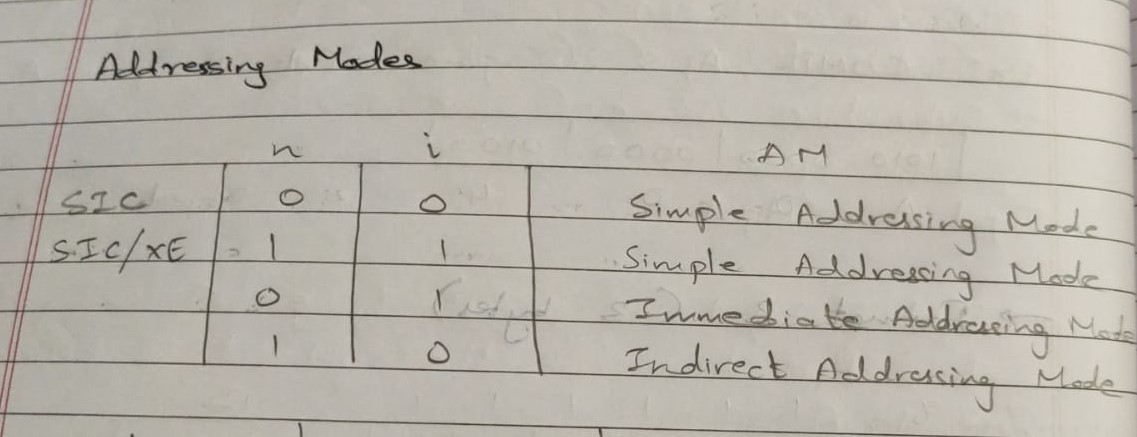 Addressing Modes
n i AM
SIC 0 0 Simple Addressing Mode
SIC/XE 1 1 Simple Addressing Mode
0 1 Immediate Addressing Mode
1 0 Indirect Addressing Mode